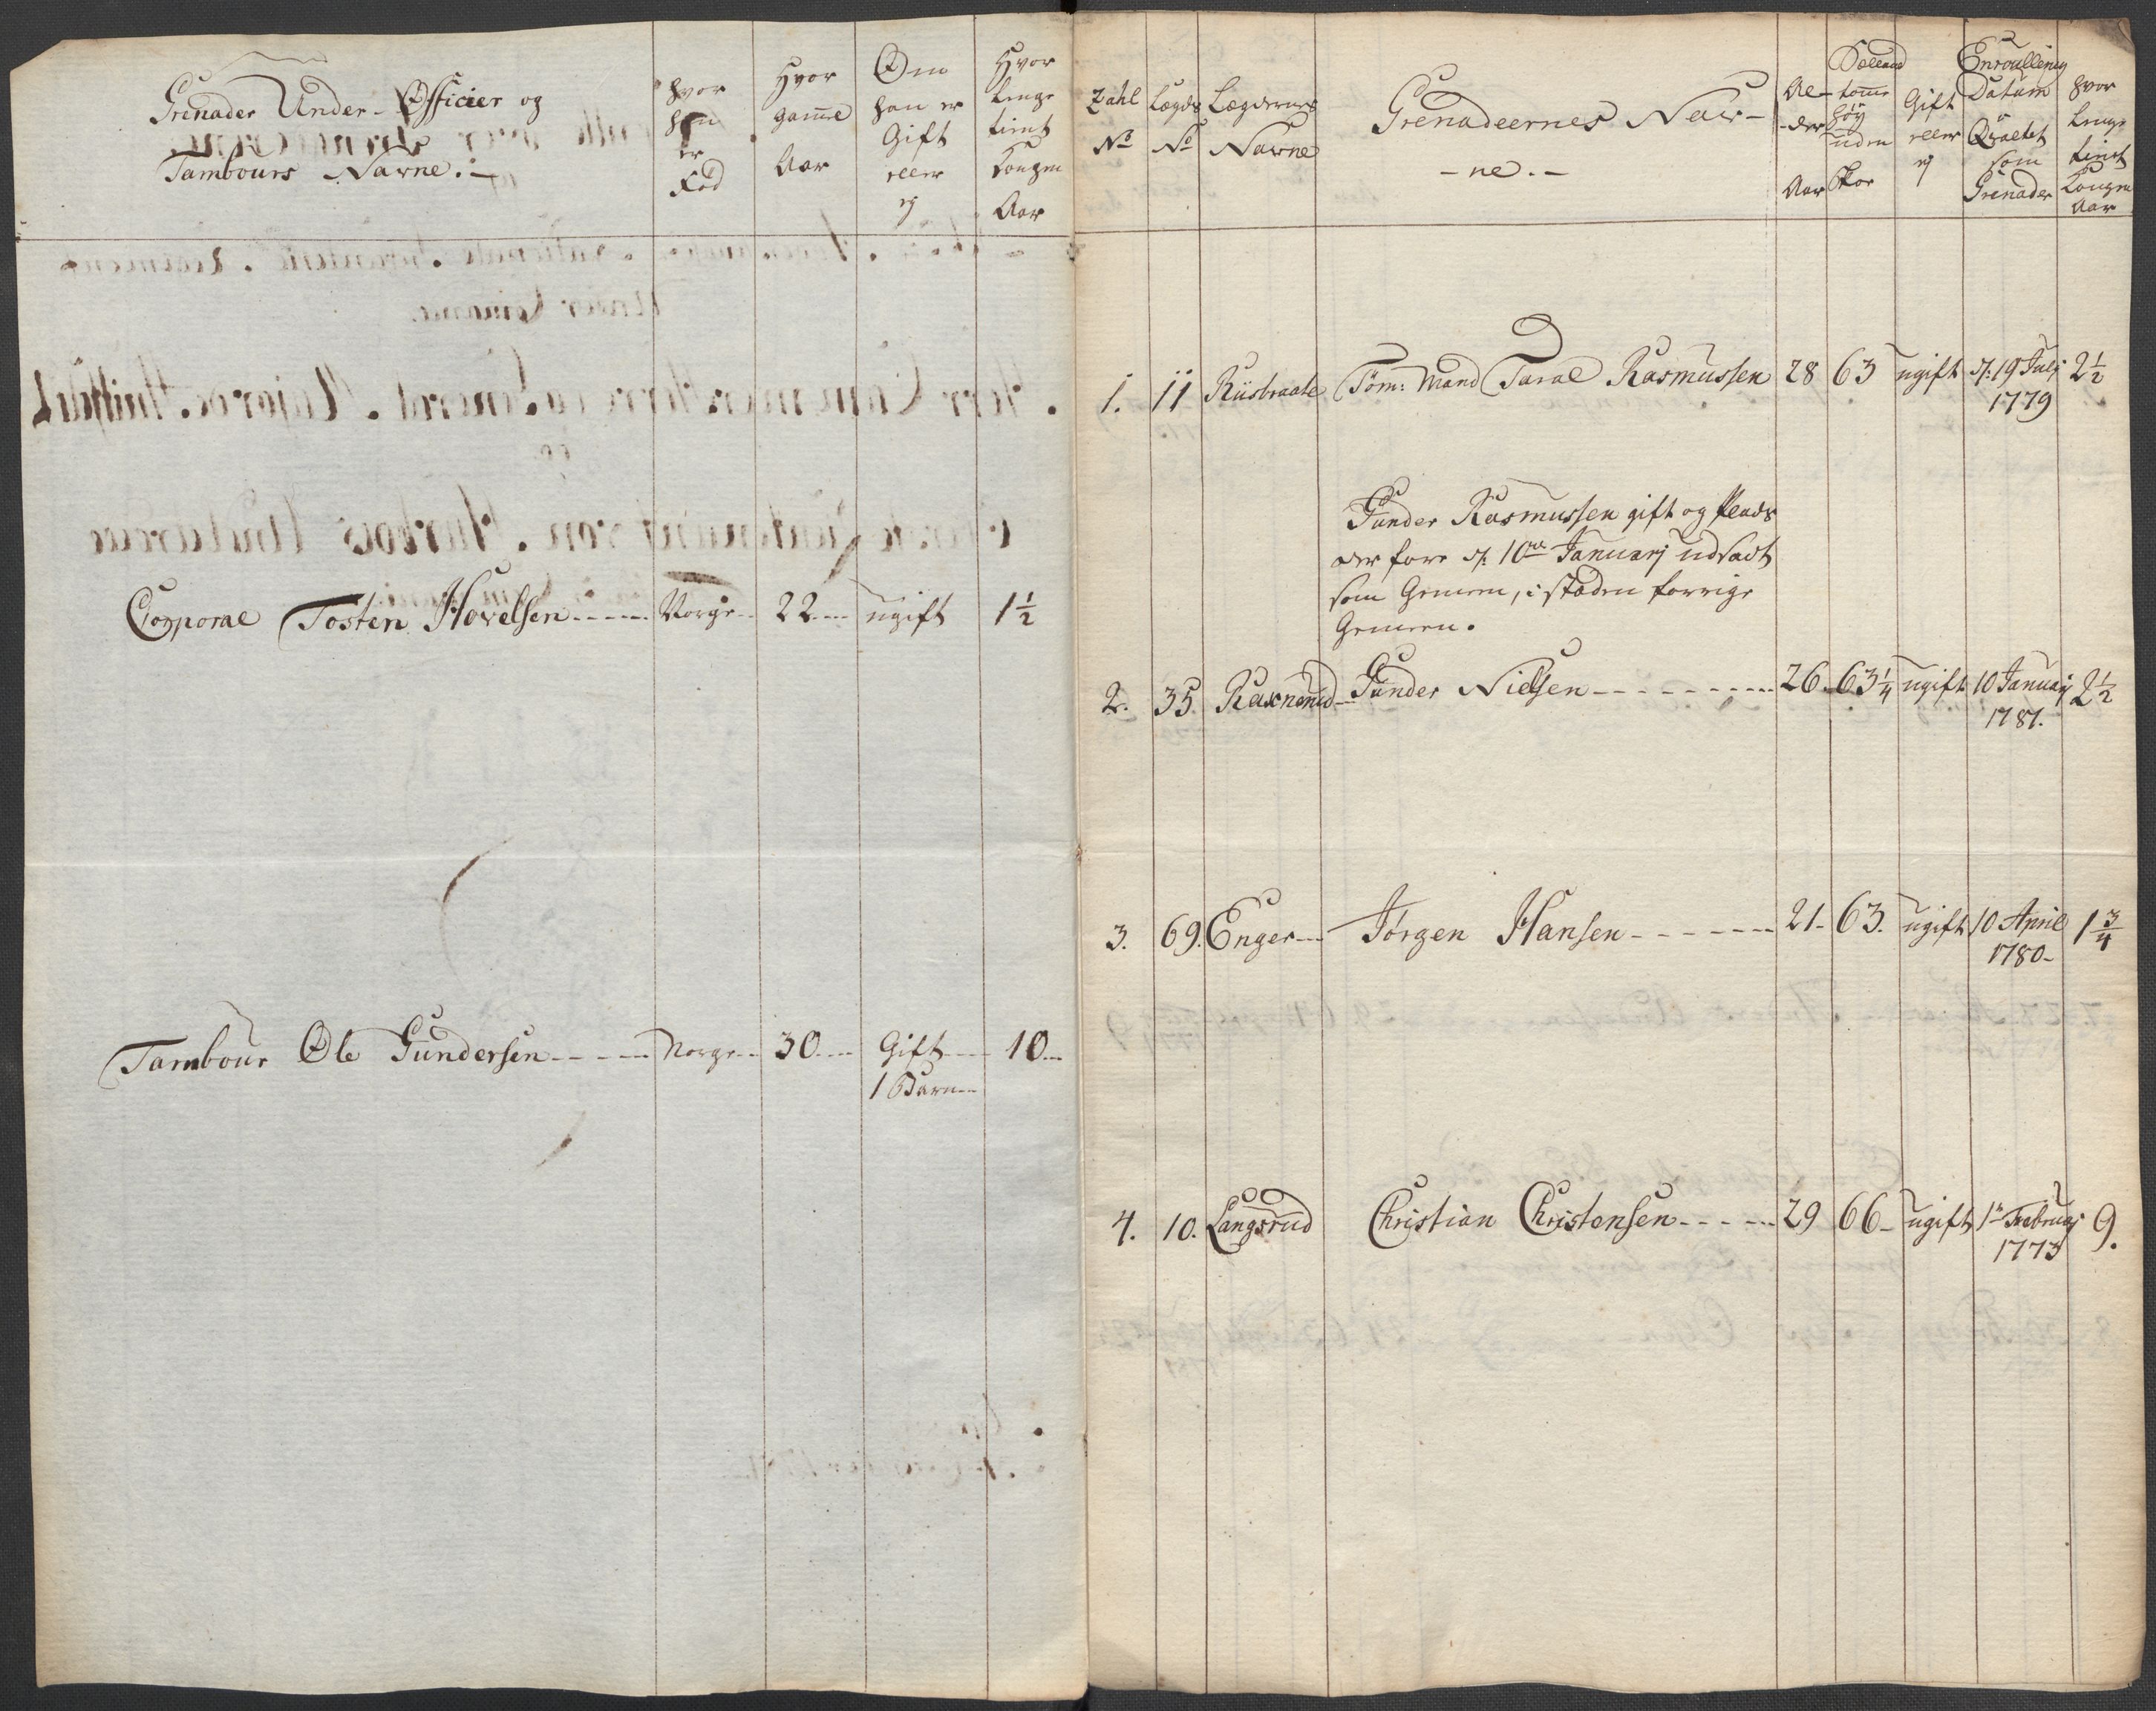 Grenader Under-Officier og
Tambours Navne.
hvor
han
er
Fød
Hvor
gam̄el
Aar
Om
han er
Gift
eller
ej
Hvor
lenge
tient
Kongen
Aar
Corporal Tosten Hovelsen Norge 22 ugift 1½
Tambour Ole Gundersen Norge 30 Gift 10
1 Barn
Zahl
No
Lægds
No
Lægdernes
Navne
Grenadeernes Nav-
-ne.-
Al-
-der
Aar
tom̄e
høy
uden
Skoe
Gift
eller
ej
Enroullering
Datum
Qvalitet
som
Grenader
hvor
lenge
tient
Kongen
Aar
1. 11 Tøm: Mand Taral Rasmussen 28 63 ugift d: 19 Julj 2½
1779
Gunder Rasmussen gift og
der fore d: 10de Januarj udsadt
som Gemeen, i stæden forrige
Gemeen.
2. 35. Gunder Nielsen 26. 63¼ ugift 10 Januarj 2½
1781.
3. 69. Enger Jørgen Hansen 21. 63. ugift 10 April 1¾
1780
4. 10. Langsrud Christian Christensen 29 66 ugift 1te Februarj 9.
1773